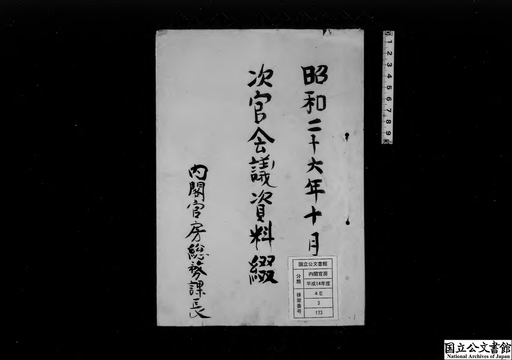 昭和二十六年十月
次官会議資料綴
内閣官房総務課長
国立公文書館
分類
内閣官房
平成14年度
4E
排架番号
3
173
1 2 3 4 5 6 7 8 9
国立公文書館
National Archives of Japan